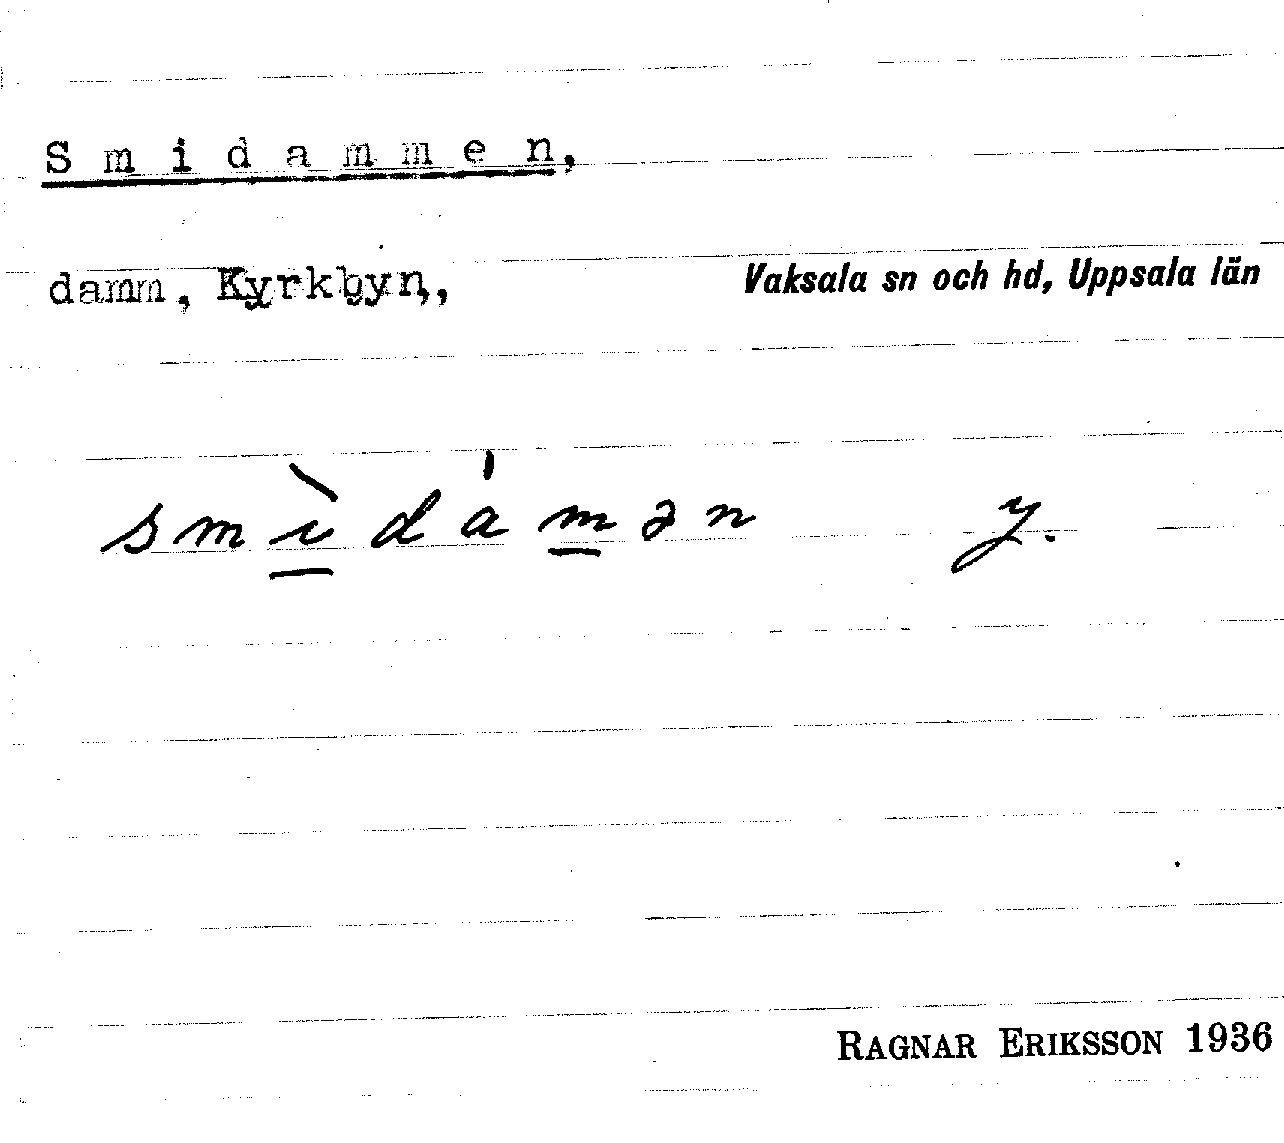 Smidammen,
damm, Kyrkbyn, Vaksala sn och hd, Uppsala län
smì̱dám̱ən y.
RAGNAR ERIKSSON 1936